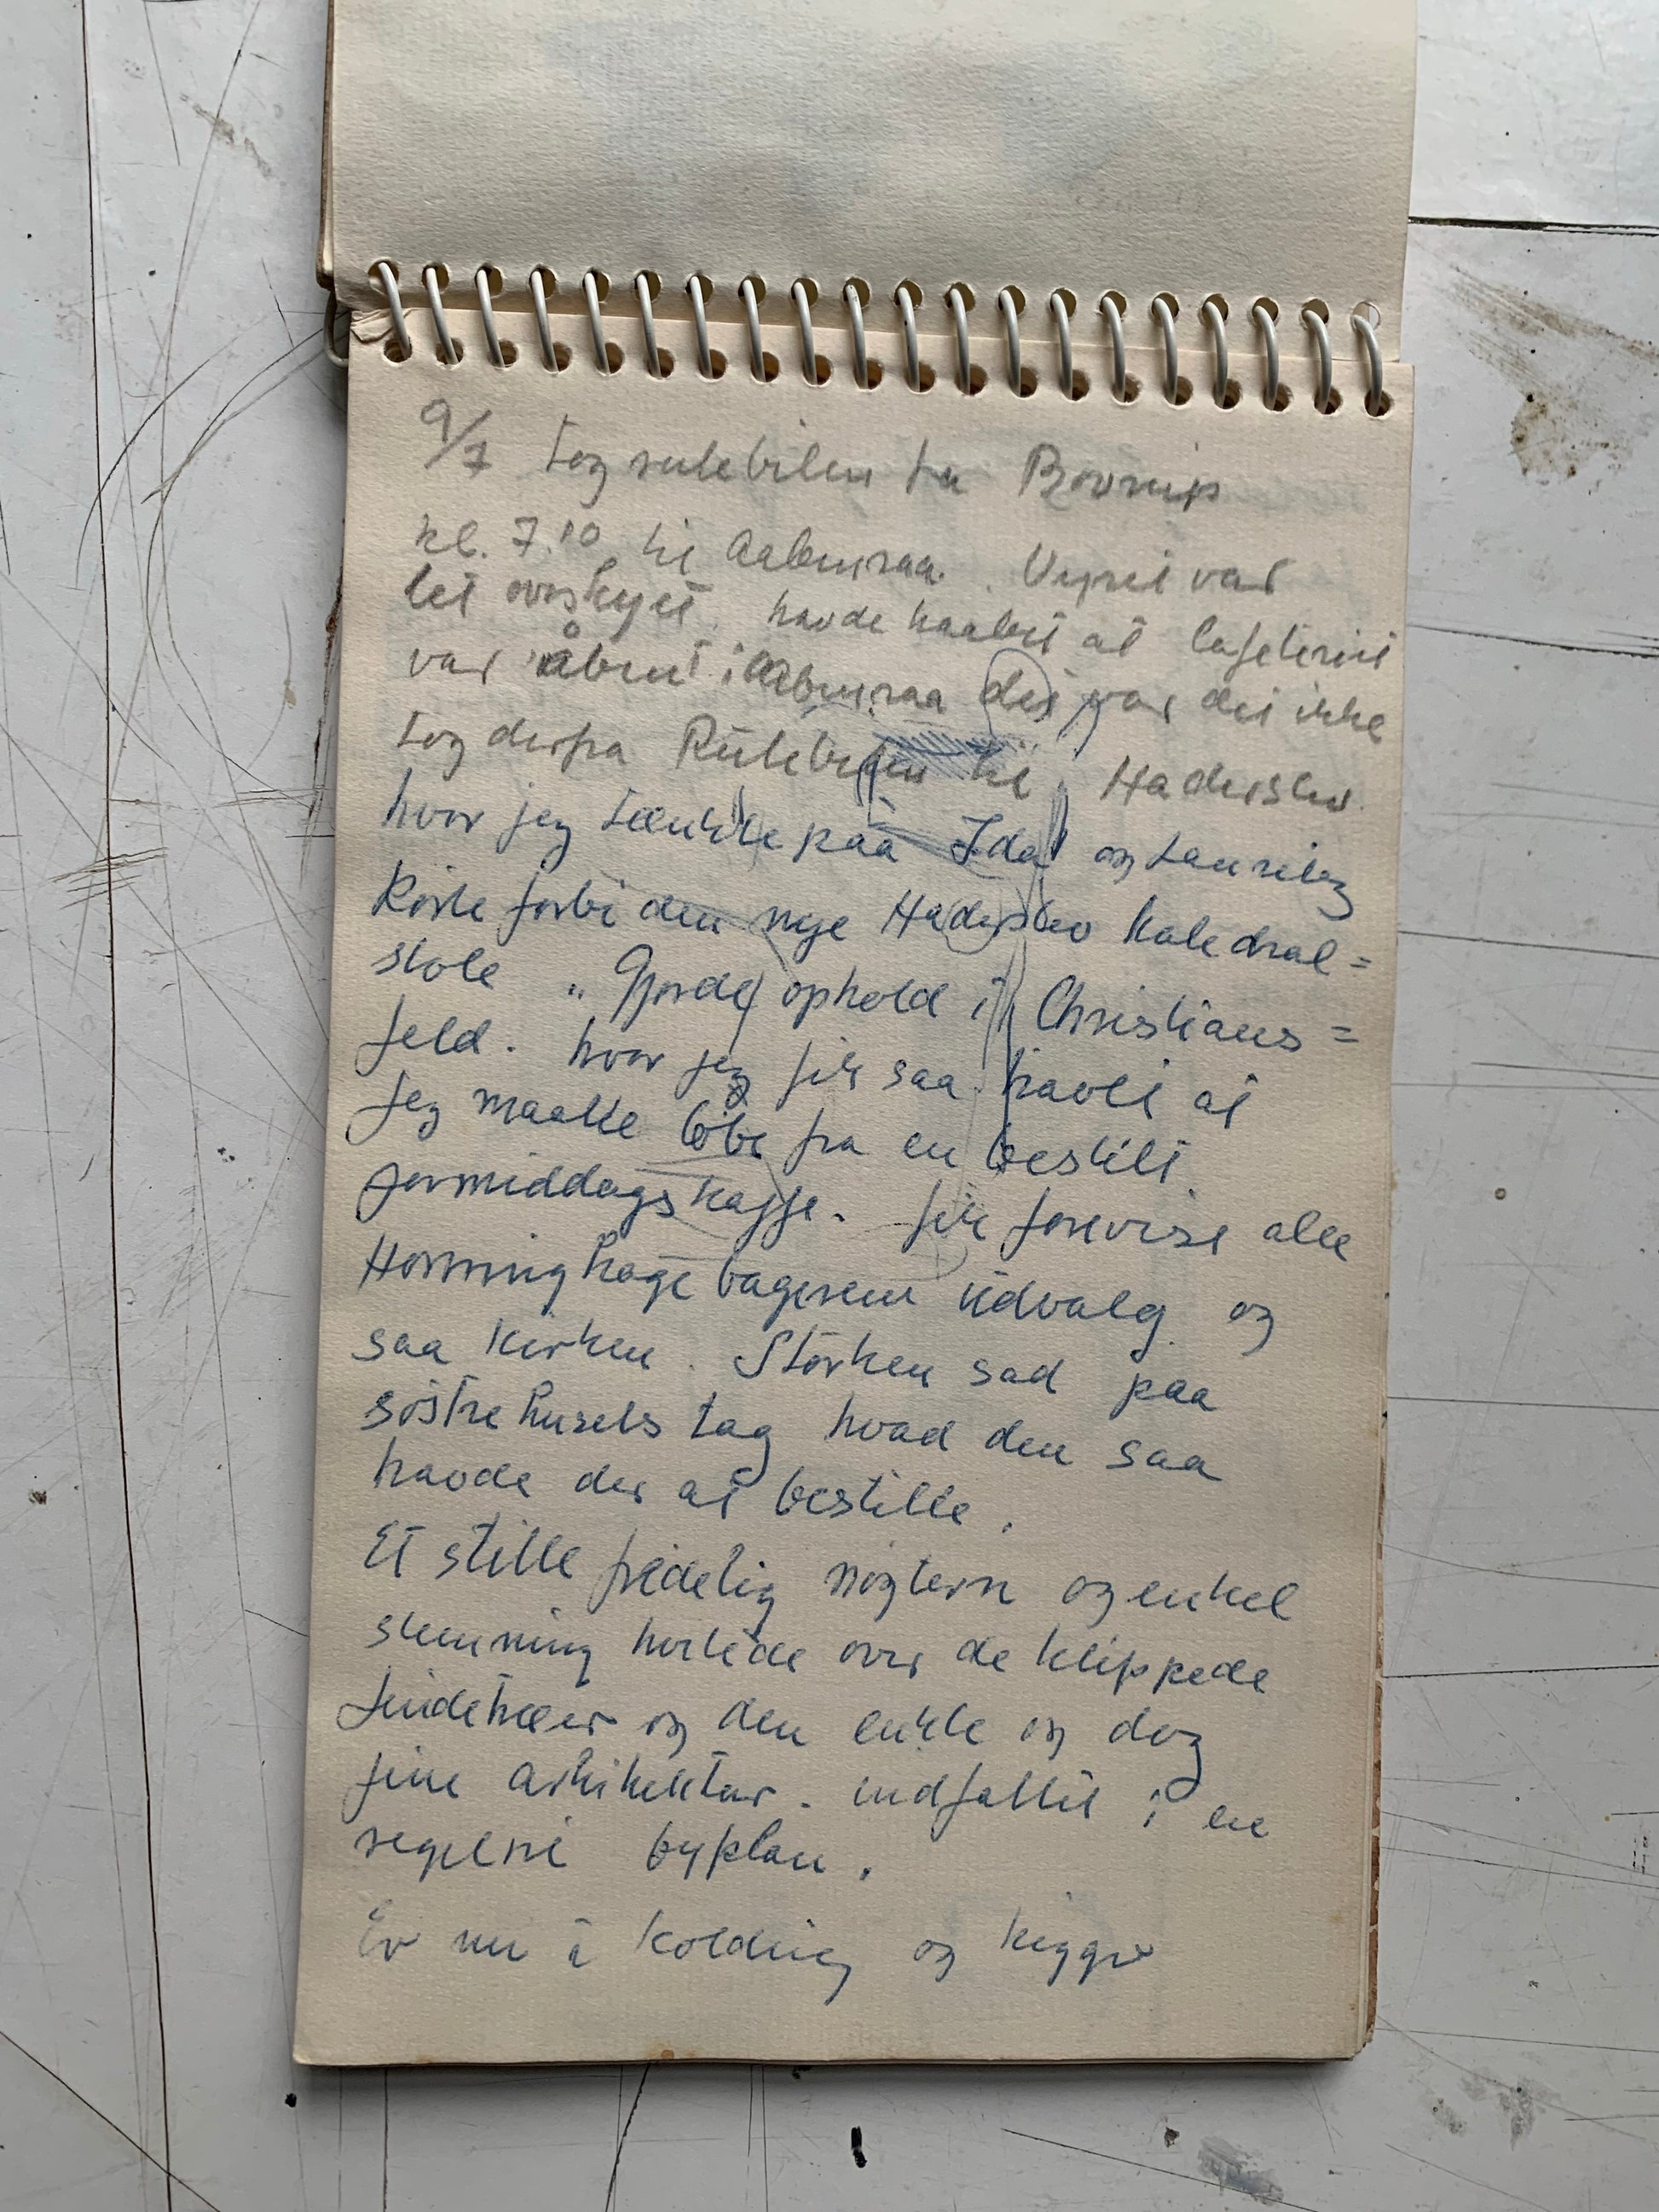 9/7 tog rutebilen fra Bovrup
kl. 7.10 til Aabenraa. Vejret var
let overskyet. havde haabet at Cafeteriet
var åbent i Aabenraa det var det ikke
tog derfra Rutebilen til Haderslev
hvor jeg tænkte paa Ida og Lauritz
Körte forbi den nye Haderslev Katedral=
skole „ Gjorde ophold i Christians=
feld. hvor jeg fik saa travlt at
jeg maatte löbe fra en bestilt
formiddagskaffe. fik forevist alle
Honningkagebagerens udvalg og
saa kirken. Storken sad paa
söstrehusets tag hvad den saa
havde der at bestille.
Et stille fredelig nögtern og enkel
stemning hvilede over de klippede
lindetræer og den enkle og dog
fine arkitektur. indfattet i en
regelret byplan.
Er nu i Kolding og kigger